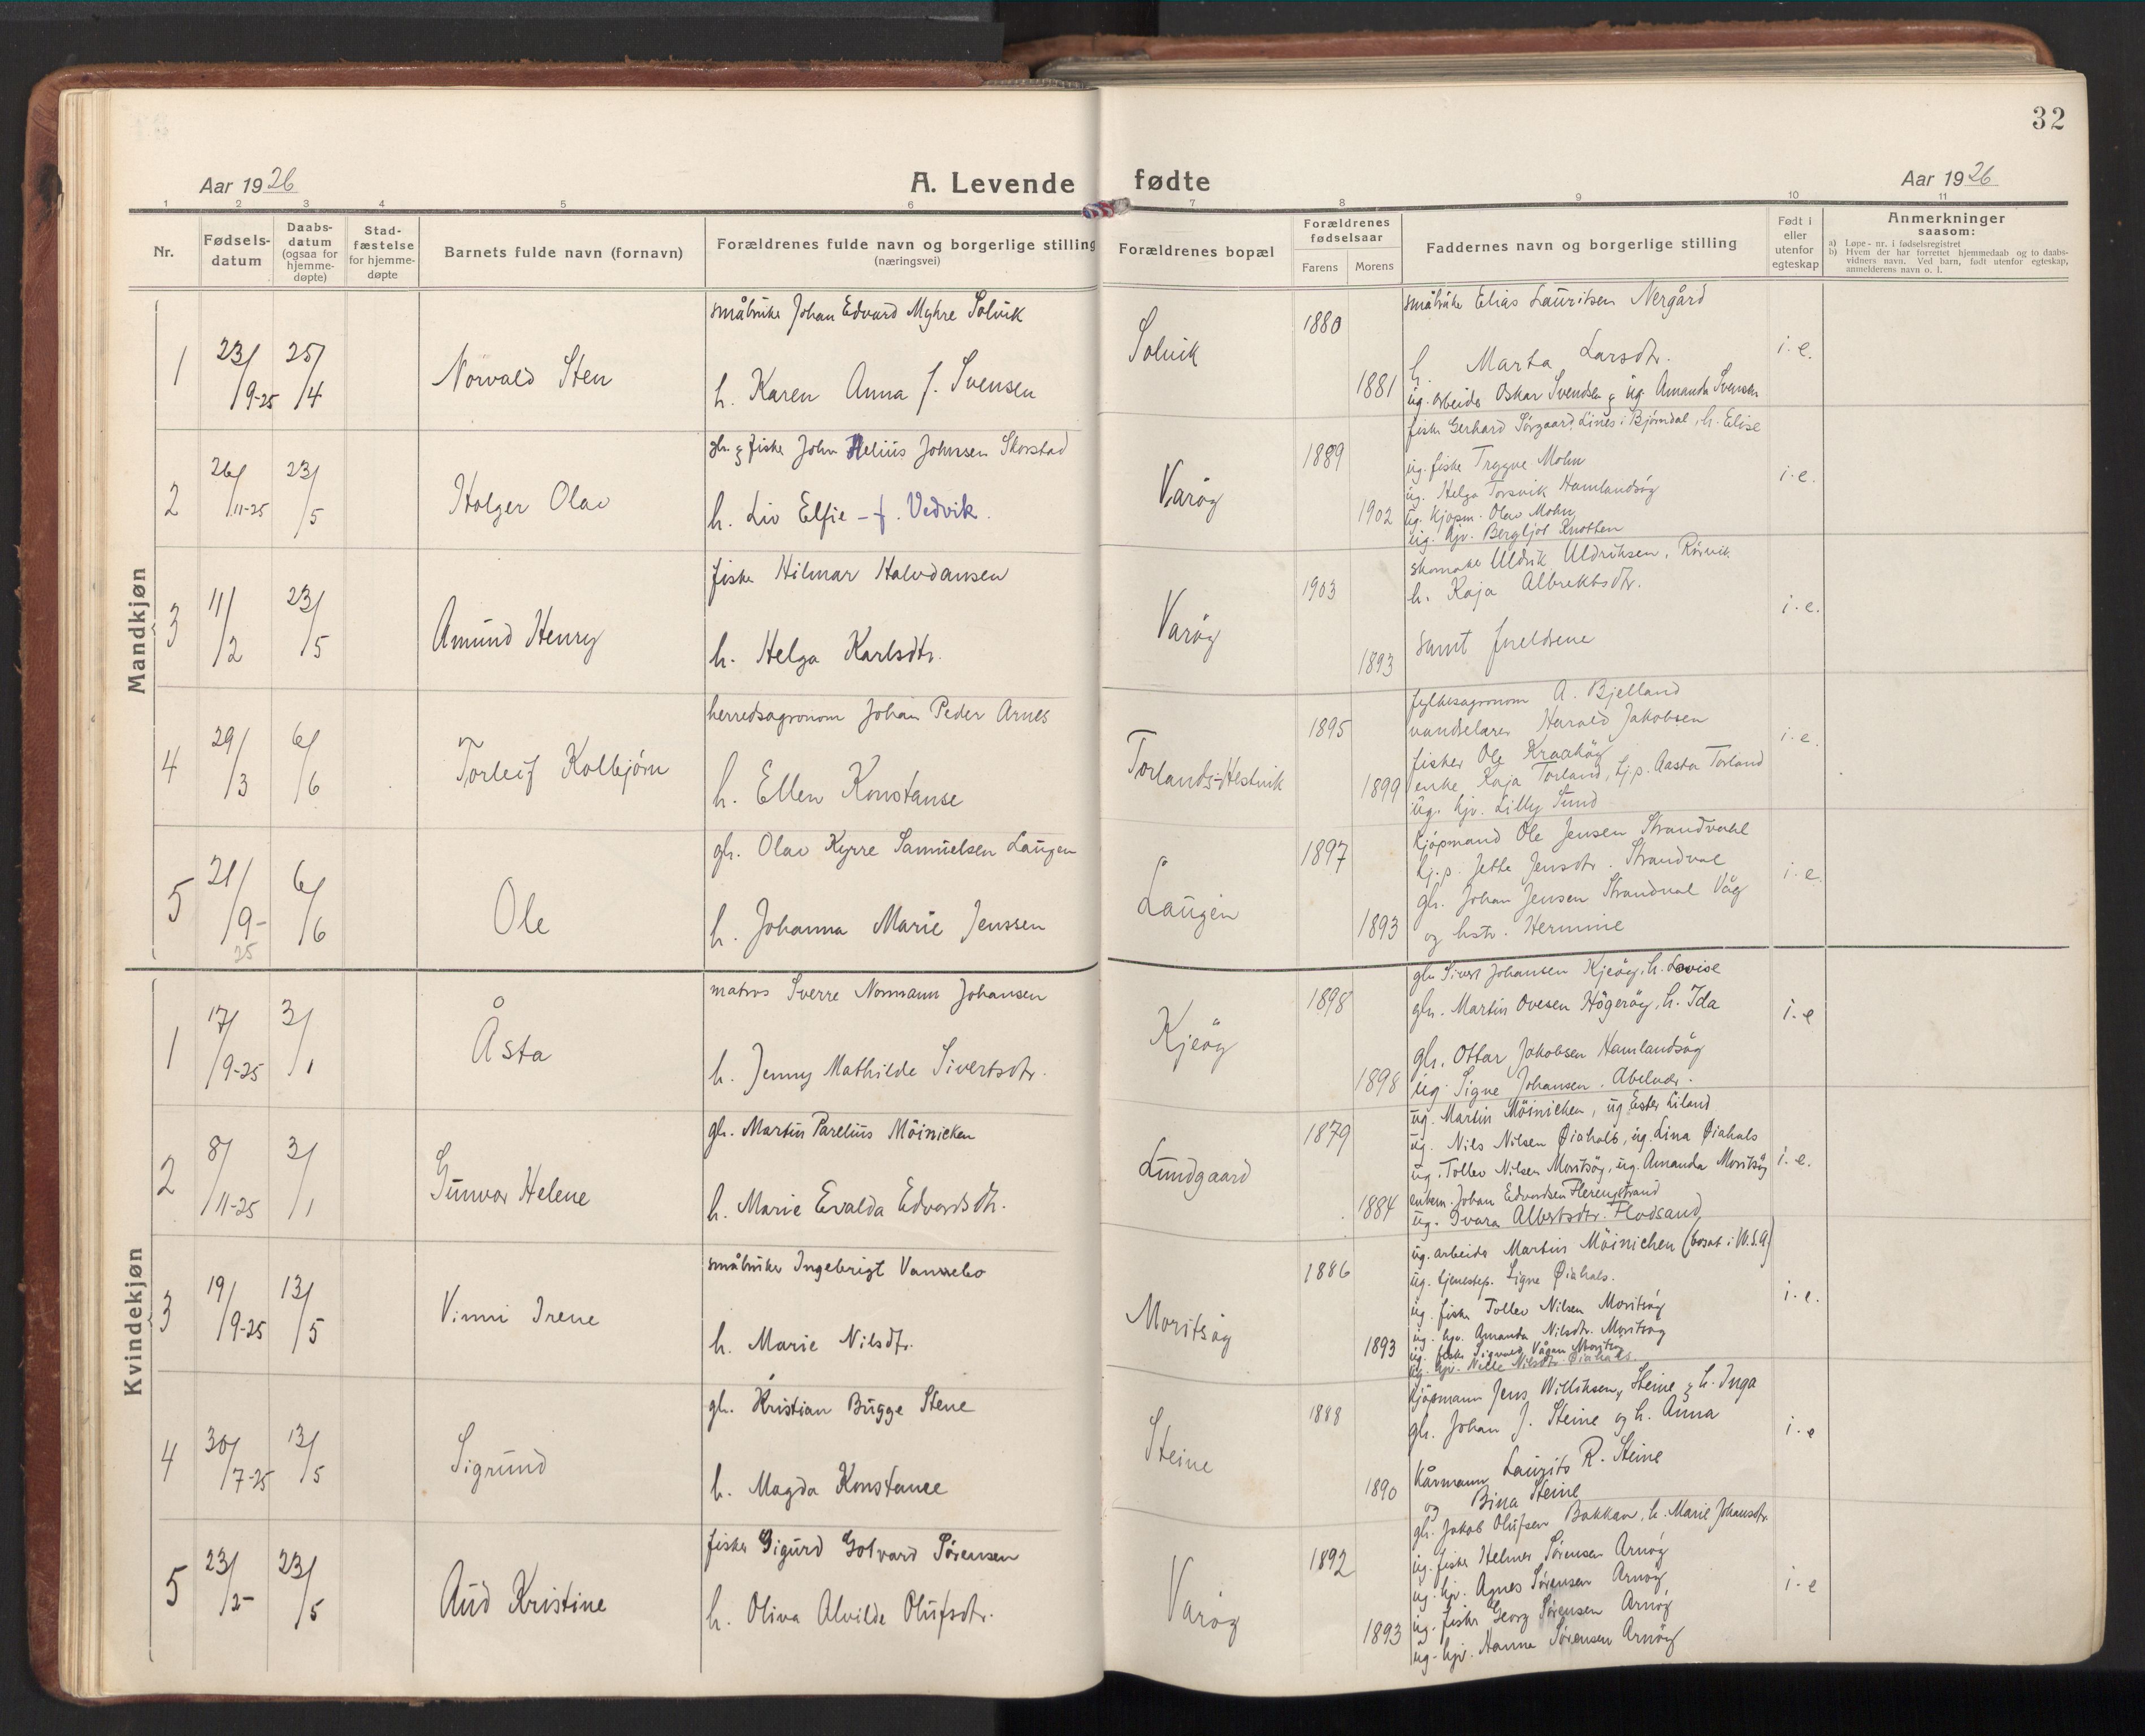 32
Aar 1926
A. Levende fødte
Aar 1926
1 2 3 4 5 6 7 8 9 10 11
Nr.
Fødsels-
datum
Daabs-
datum
(ogsaa for
hjemme-
døpte)
Stad-
fæstelse
for hjemme-
døpte
Barnets fulde navn (fornavn)
Forældrenes fulde navn og borgerlige stilling
(næringsvei)
Forældrenes bopæl
Forældrenes
fødselsaar
Farens Morens
Faddernes navn og borgerlige stilling
Født i
eller
utenfor
egteskap
Anmerkninger
saasom:
a) Løpe-nr. i fødselsregistret
b) Hvem der har forrettet hjemmedaab og to daabs-
vidners navn. Ved barn, født utenfor egteskap,
anmelderens navn o. l.
Mandkjøn
1 23/9-25 25/4 Norvald Sten
småbruker Johan Edvard Myhre Solvik
h. Karen Anna f. Svensen
Solvik 1880 1881
småbruker Elias Lauritsen Nergård
h. Marta Larsdtr.
ug. arbeider Oskar Svendsen og ug. Amanda Svensen
i. e.
2 26/11-25 23/5 Holger Olav
gbr. og fisker John Helius Johnsen Skorstad
h. Liv Elfie - f. Vedvik.
Varøy 1889 1902
fisker Gerhard Sørgaard Lines i Bjørndal, h. Elise
ug. fisker Trygve Mohn
ug. Helga Torsvik Hamlandsøy
ug. kjøpm. Olav Mohn
ug. hjv. Bergljot Knotten
i. e.
3 11/2 23/5 Amund Henry
fisker Hilmar Halvdansen
h. Helga Karlsdtr.
Varøy 1903 1893
skomaker Uldrik Uldriksen, Rørvik
h. Kaja Albrektsdtr.
samt foreldrene
i. e.
4 29/3 6/6 Torleif Kolbjørn
herredsagronom Johan Peder Arnes
h. Ellen Konstanse
Torlands-Hestvik 1895 1899
fylkesagronom A. Bjelland
vandrelærer Harald Jakobsen
fisker Ole Kraakøy
enke Kaja Torland, tj.p. Aasta Torland
ug. hjv. Lilly Sund
i. e.
5 21/9-25 6/6 Ole
gbr. Olav Kyrre Samuelsen Laugen
h. Johanna Marie Jenssen
Laugen 1897 1893
Kjøpmand Ole Jensen Strandvahl
tj.p. Jette Jensdtr. Strandval
gbr. Johan Jensen Strandval Våg
og hstr. Hermine
i. e.
Kvindekjøn
1 17/9-25 3/1 Åsta
matros Sverre Normann Johansen
h. Jenny Mathilde Sivertsdtr.
Kjeøy 1898 1898
gbr. Sivert Johansen Kjeøy, h. Lovise
gbr. Martin Ovesen Högeröy, h. Ida
gbr. Ottar Jakobsen Hamlandsøy
ug. Signe Johansen. Abelvær.
i. e
2 8/11-25 3/1 Gunvor Helene
gbr. Martin Parelius Möinicken
h. Marie Evalda Edvardsdtr.
Lundgaard 1879 1884
ug. Martin Möinichen, ug Ester Liland
ug. Nils Nilsen Øiahals, ug. Lina Øiahals
ug. Tollev Nilsen Moritsøy, ug. Amanda Moritsøy
Johan Edvardsen Flerengstrand
ug. Ivara Albertsdtr. Flodsand
i. e.
3 19/9-25 13/5 Vinni Irene
småbruker Ingebrigt Vannebo
h. Marie Nilsdtr.
Moritsøy 1886 1893
ug. arbeider Martin Möinichen (bosat i U.S.A)
ug. tjenestep. Signe Øiahals.
ug. fisker Tollev Nilsen Moritsøy
ug. hjv. Amanda Nilsdtr. Moritsøy
ug. fisker Sigvald Vågan Moritsøy
ug. hjv. Nelle Nilsdtr. Øiahals.
i. e.
4 30/7-25 13/5 Sigrund
gbr. Kristian Bugge Stene
h. Magda Konstance
Steine 1888 1890
Kjøpmann Jens Williksen, Steine og h. Inga
gbr. Johan J. Steine og h. Anna
Kårmann Laurits R. Steine
og Bina Steine
i. e
5 23/2- 23/5 Aud Kristine
fisker Sigurd Solvard Sørensen
h. Oliva Alvilde Olufsdtr.
Varøy 1892 1893
gbr. Jakob Olufsen Bakkan, h. Marie Johansdtr.
ug. fisker Helmer Sørensen Arnøy
ug. hjv. Agnes Sørensen Arnøy
ug. fisker Georg Sørensen Arnøy
ug. hjv. Hanna Sørensen Arnøy
i. e